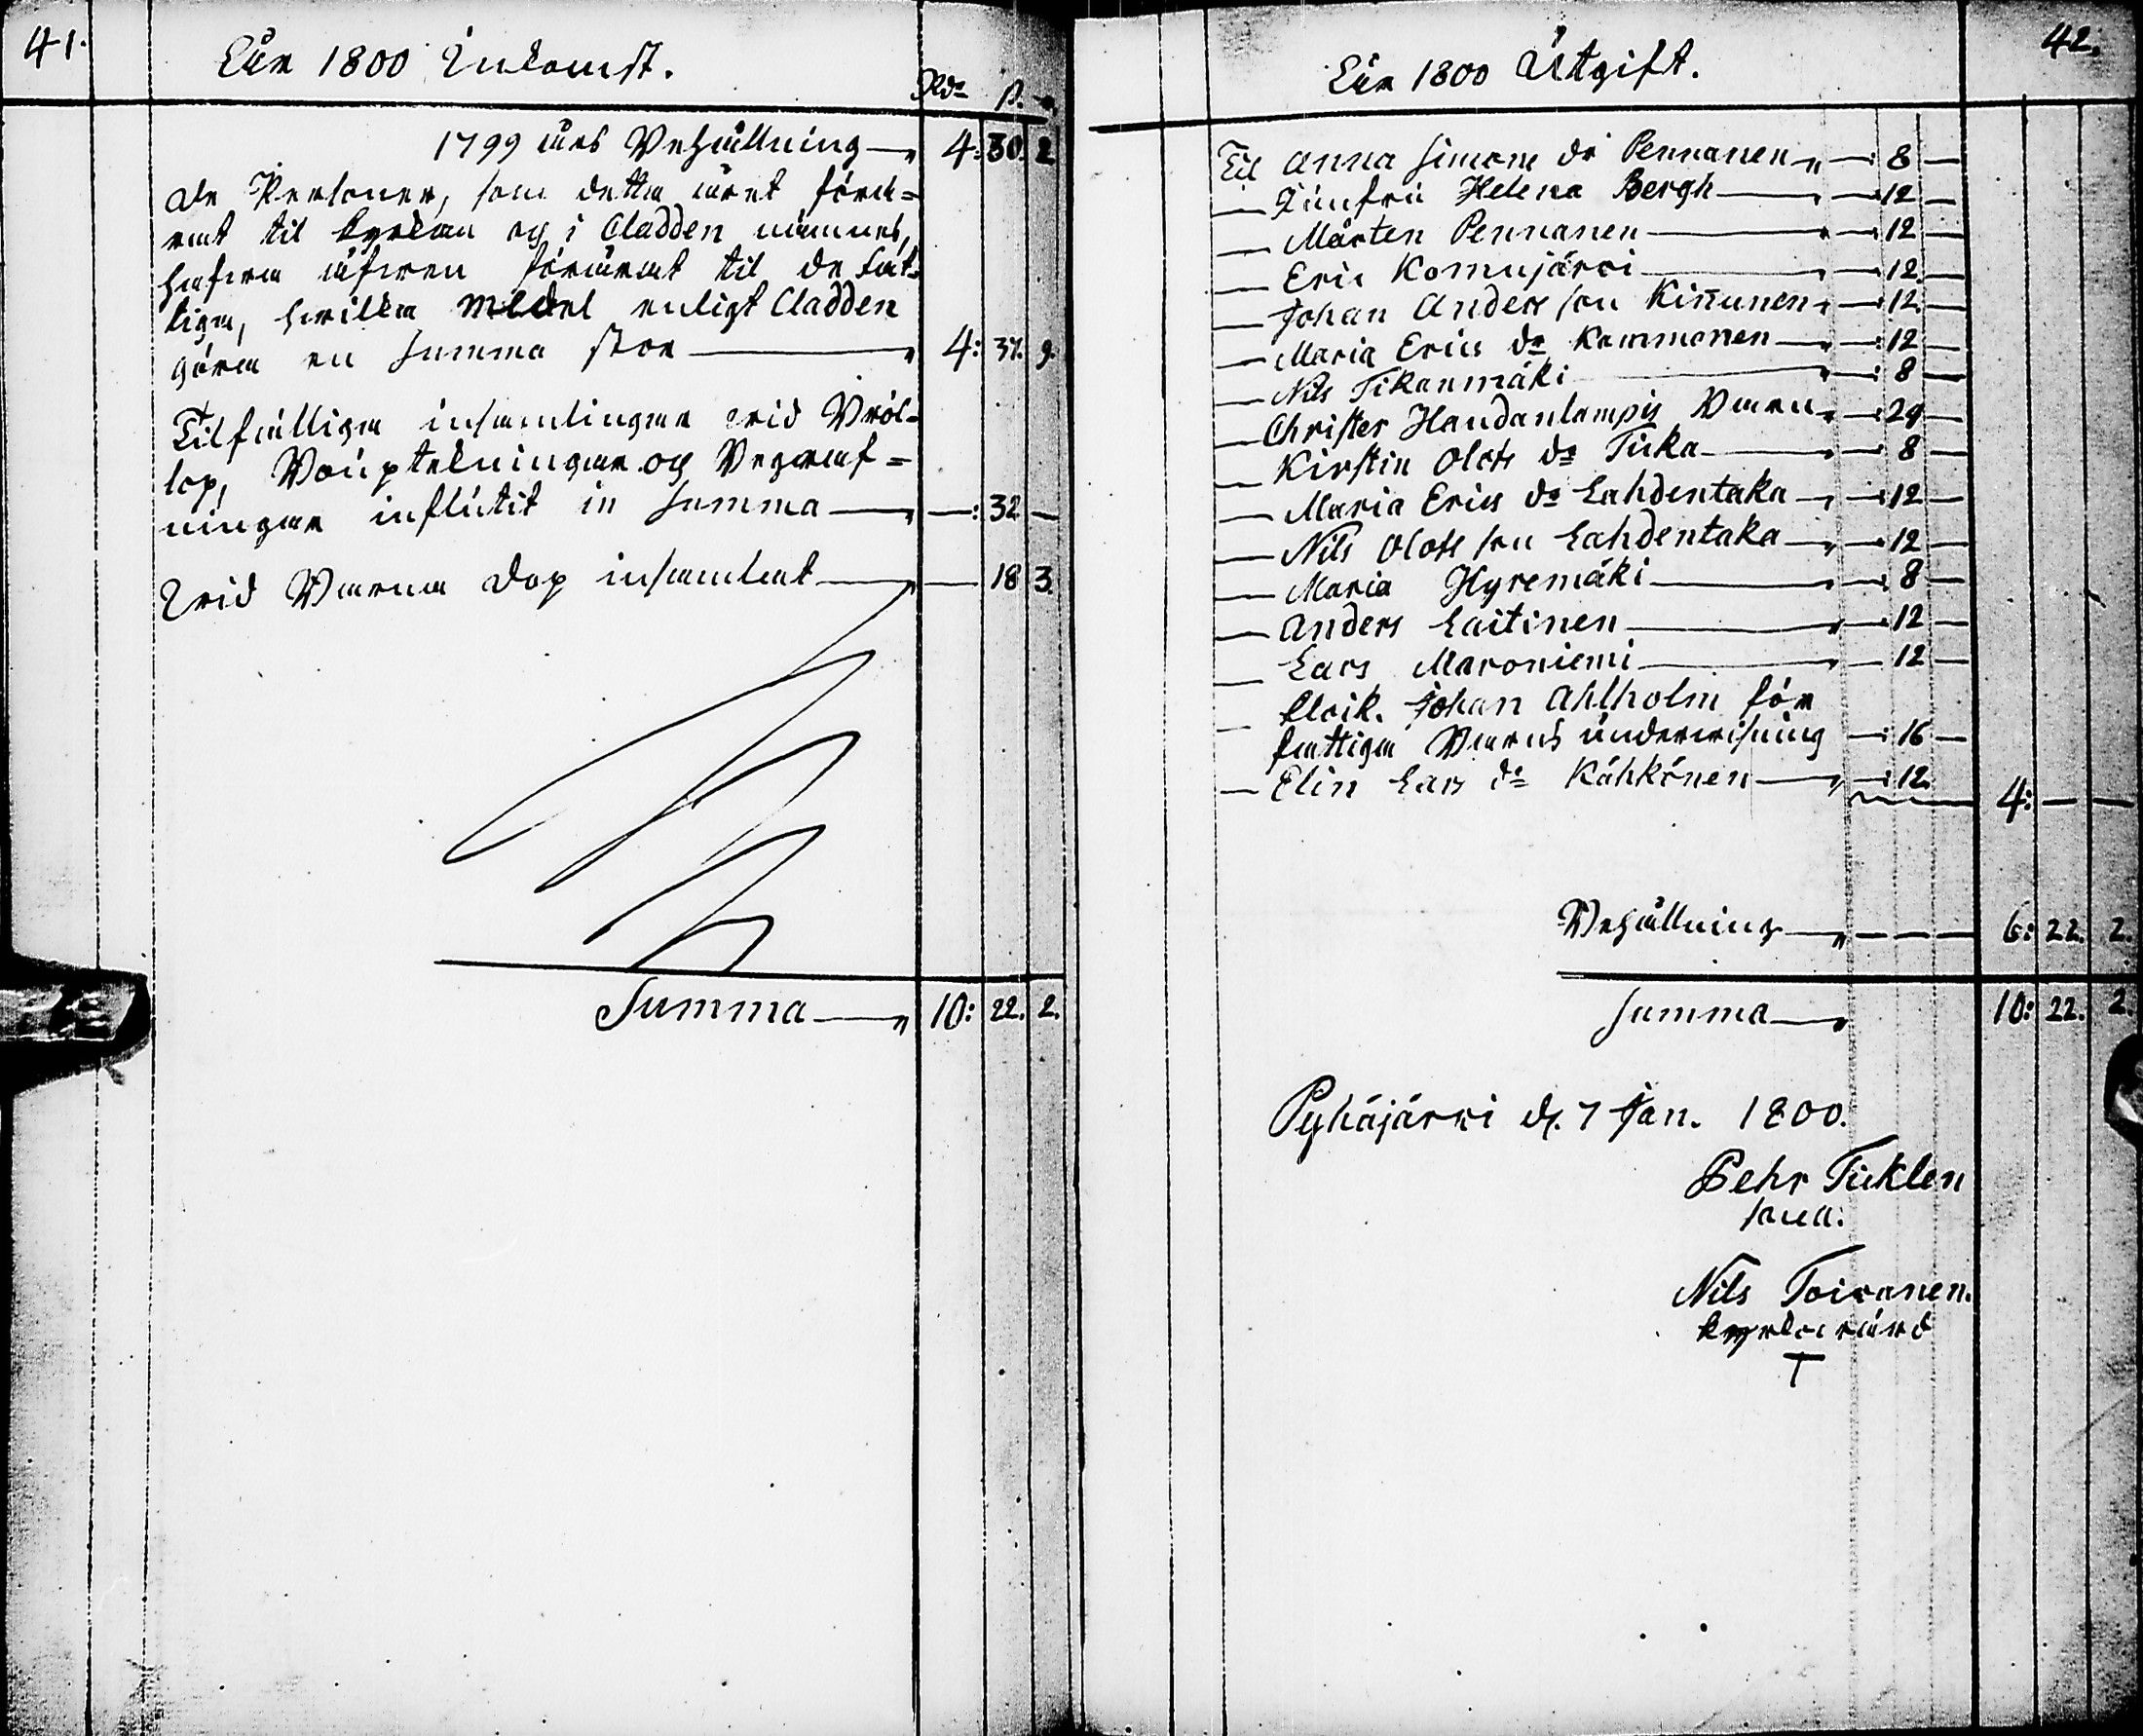 41.
För 1800 Inkomst.
Rdr ß. –
1799 års Behållning — 4: 30. 2
De Personer, som detta året förä-
rat til kyrkan og i Cladden nämnes,
hafwa äfwen förärat til de fat-
tiga, hwilka Medel enligt Cladden
göra en Summa stor — 4: 37. 9.
Tilfälliga insamlingar wid Bröl-
lop, Barnsängar og Begraf-
ningar influtit in Summa — —: 32 —
Wid Barna Dop insamlat — — 18 3.
Summa — 10: 22. 2.
42.
För 1800 Utgift.
Til Anna Simons dr Pennanen — : 8 —
— Jumfru Helena Bergh — : 12 —
— Mårten Pennanen — : 12 —
— Eric Komujärvi — : 12 —
— Johan Anders son Kiñunen — : 12 —
— Maria Erics dr Kammonen — : 12 —
— Nils Tikanmäki — : 8 —
— Christer Haudanlampis Barn — : 24 —
— Kirstin Olofs dr Tuka — : 8 —
— Maria Erics dr Lahdentaka — : 12 —
— Nils Olofs son Lahdentaka — : 12 —
— Maria Hyremäki — : 8 —
— Anders Laitinen — : 12 —
— Lars Maroniemi — 12 —
— Klock. Johan Ahlholm för
fattiga Barns underwisning — : 16 —
— Elin Lars dr Kähkönen — : 12. 4: — —
Behållning — 6: 22. 2.
Summa — 10: 22. 2.
Pyhäjärwi d. 7 Jan. 1800.
Pehr Ticklen
Nils Toivanen.
kyrkowärd